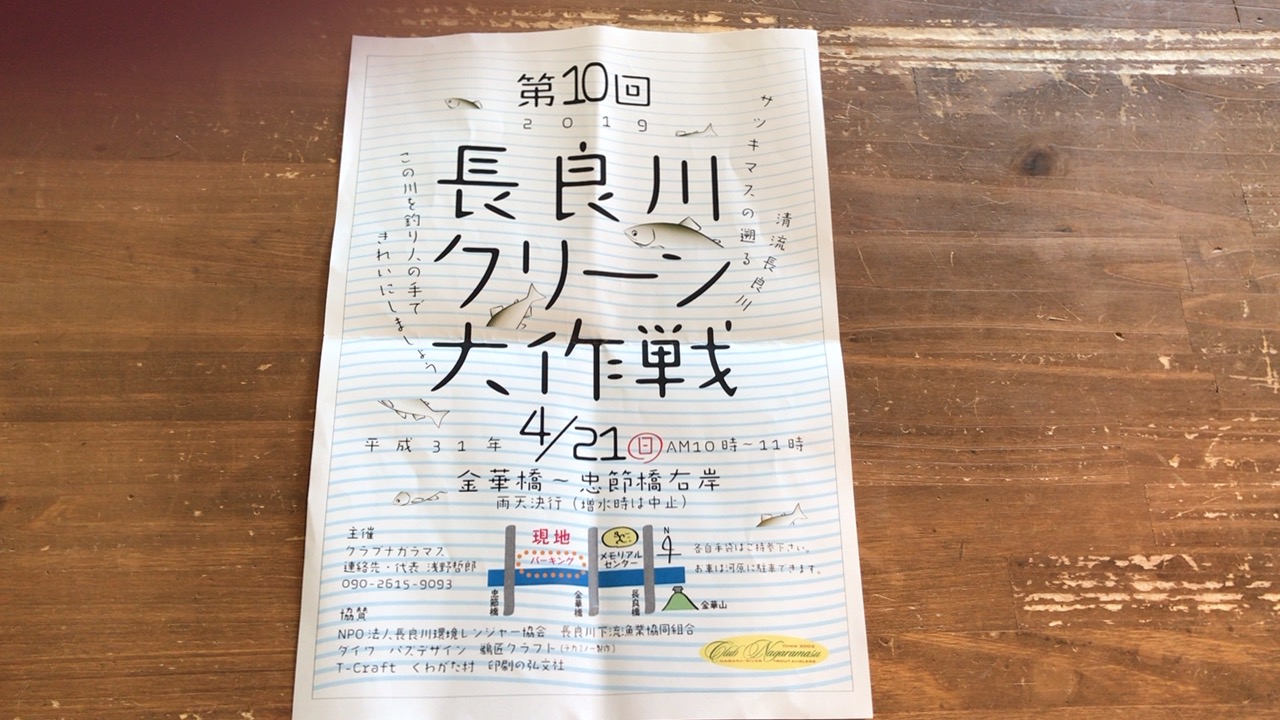 第10回
2019
長良川
クリーン
大作戦
サツキマスの遡る
清流長良川
この川を釣り人の手で
きれいにしましょう
平成31年 4/21 日 AM10時～11時
金華橋～忠節橋右岸
雨天決行（増水時は中止）
主催
クラブナガラマス
連絡先・代表 浅野哲郎
090-2615-9093
現地
パーキング
メモリアル
センター
N
忠節橋
金華橋
長良橋
金華山
各自手袋はご持参下さい。
お車は河原に駐車できます。
協賛
NPO法人長良川環境レンジャー協会 長良川下流漁業協同組合
ダイワ バスデザイン 鵜匠クラフト
T-Craft くわがた村 印刷の弘文社
Club Nagaramasu